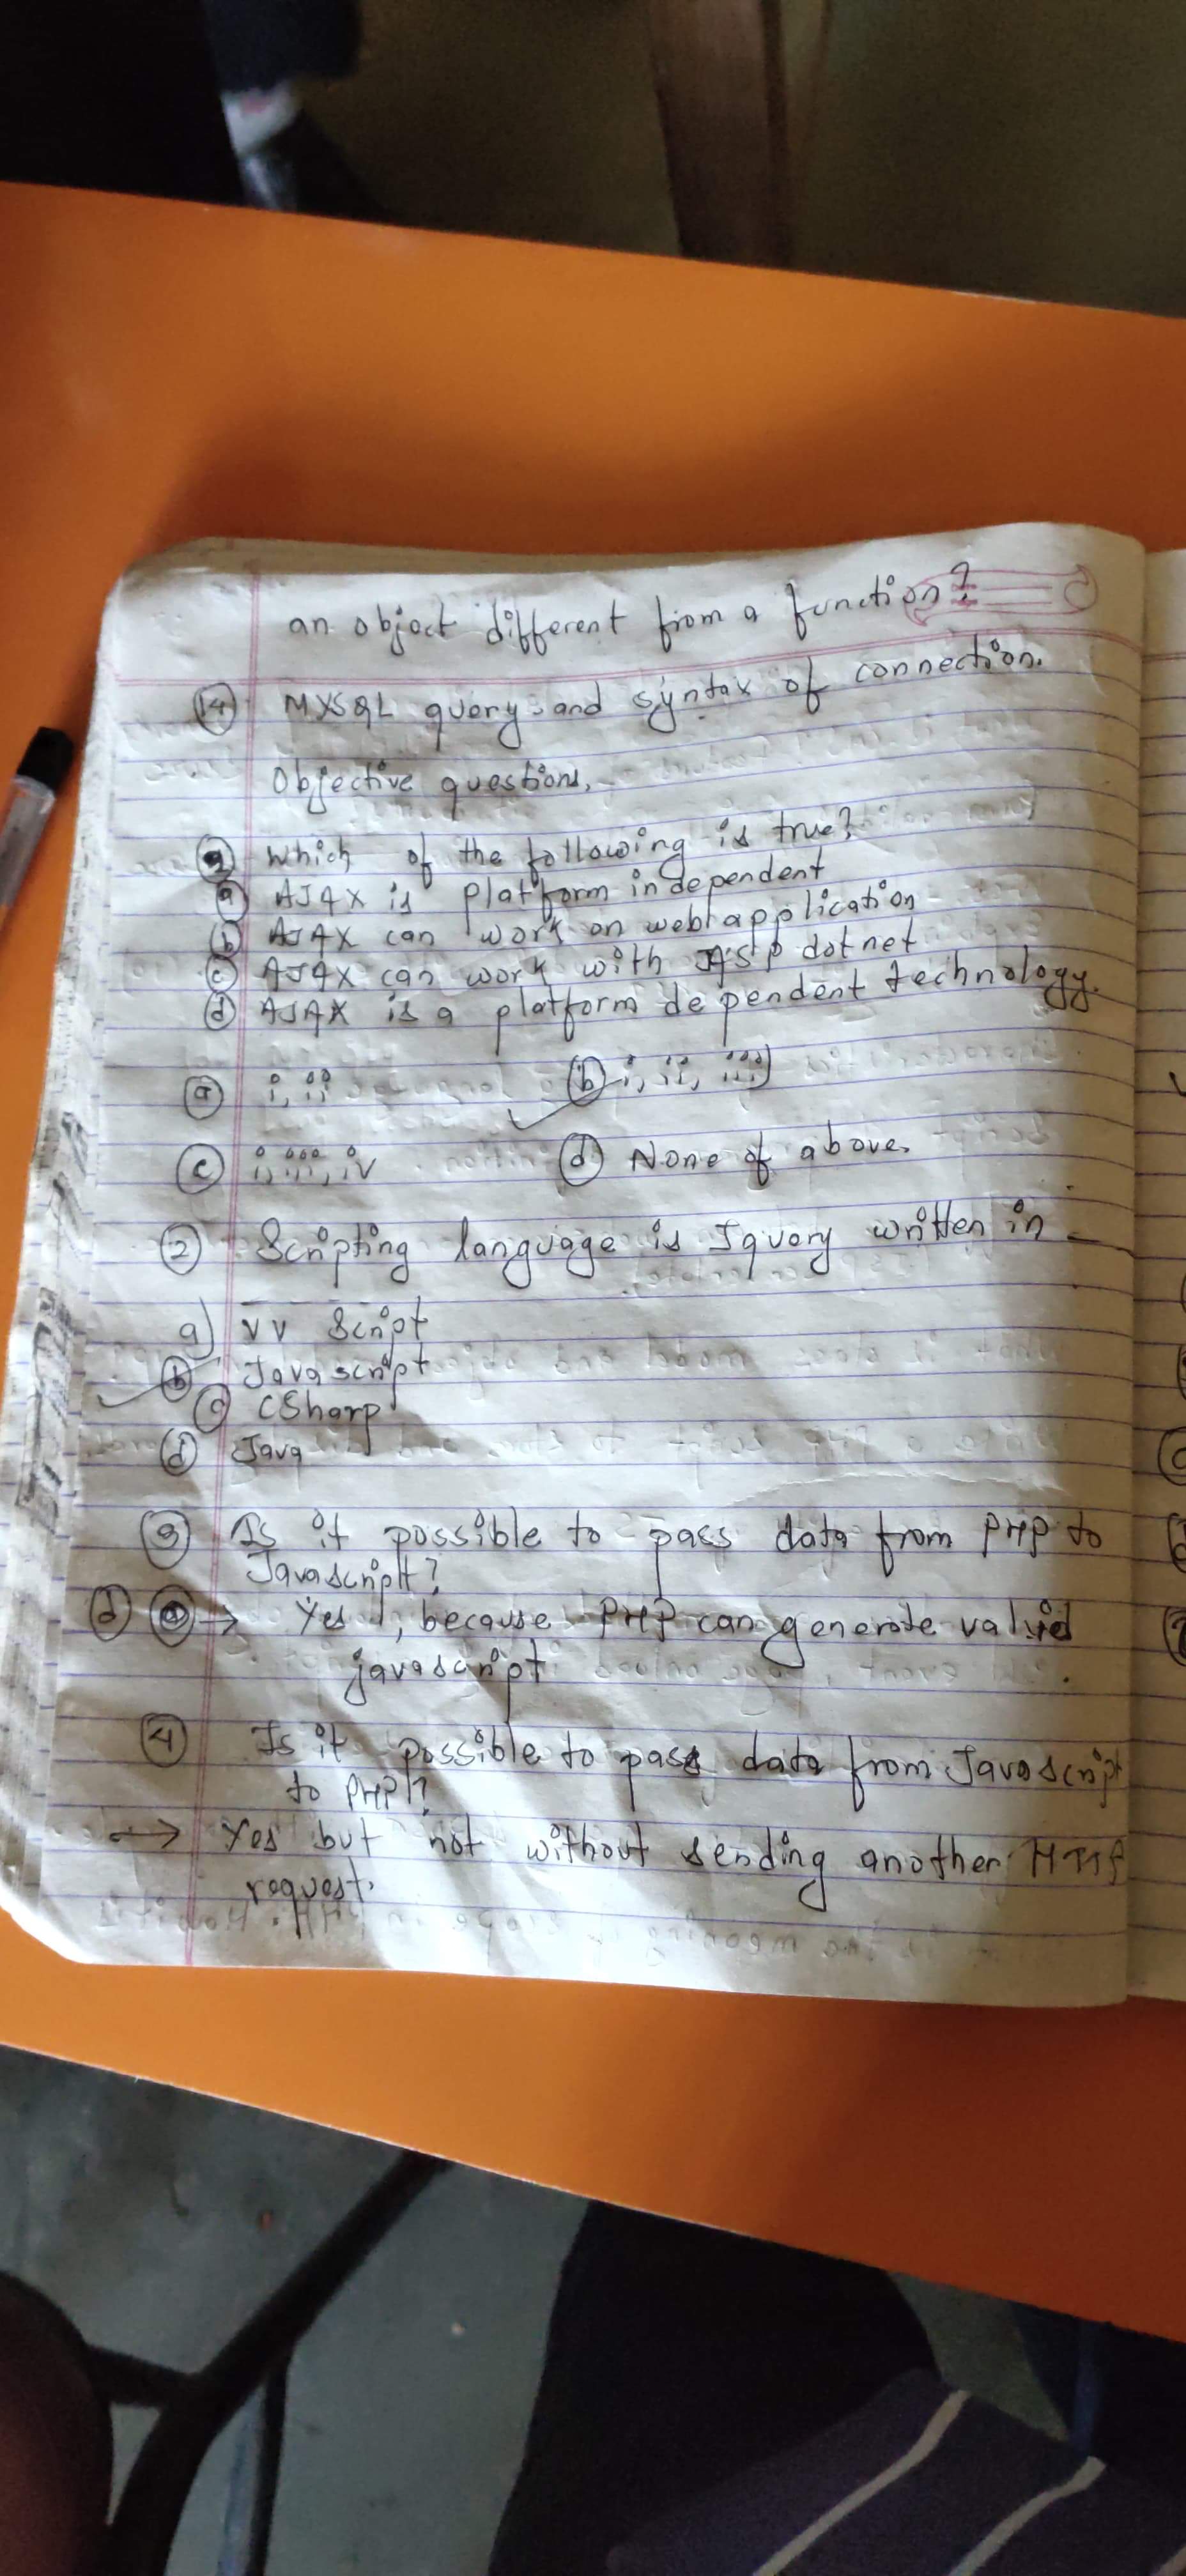 an object different from a function?
14 MYSQL query and syntax of connection.
Objective questions,
Which of the following is true?
a AJAX is platform independent
b AJAX can work on web application
c AJAX can work with ASP dot net
d AJAX is a platform dependent technology.
a i, ii b i, ii, iii
c i, iii, iv d None of above.
2 Scripting language is Jquery written in -
a) Script
b Javascript
c CSharp
d Java
3 Is it possible to pass data from PHP to
Javascript?
d → Yes, because PHP can generate valid
javascript
4 Is it possible to pass data from Javascript
to PHP?
→ Yes but not without sending another HTTP
request.